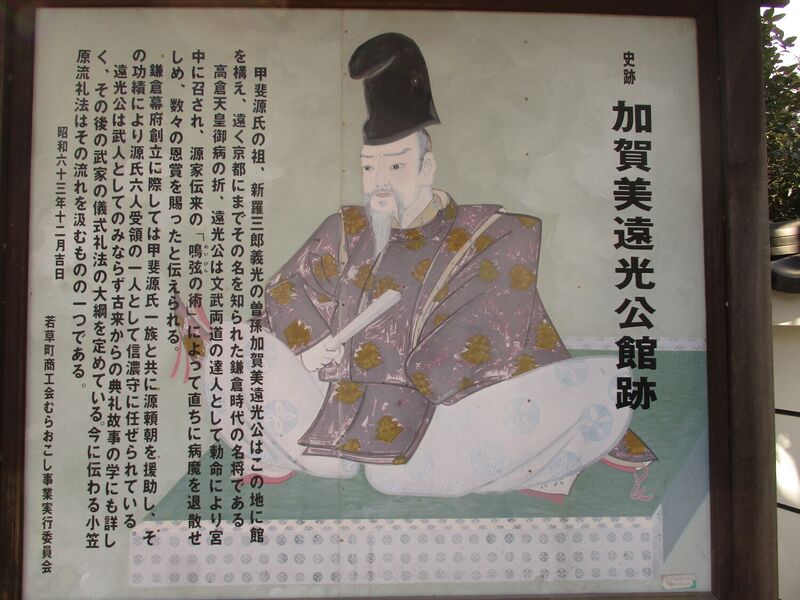 史跡
加賀美遠光公館跡
甲斐源氏の祖、新羅三郎義光の曽孫加賀美遠光公はこの地に館
を構え、遠く京都にまでその名を知られた鎌倉時代の名将である
高倉天皇御病の折、遠光公は文武両道の達人として勅命により宮
中に召され、源家伝来の「鳴弦の術」によって直ちに病魔を退散せ
めいげん
しめ、数々の恩賞を賜ったと伝えられる。
鎌倉幕府創立に際しては甲斐源氏一族と共に源頼朝を援助し、そ
の功績により源氏六人受領の一人として信濃守に任ぜられている。
遠光公は武人としてのみならず古来からの典礼故事の学にも詳し
く、その後の武家の儀式礼法の大綱を定めている。今に伝わる小笠
原流礼法はその流れを汲むものの一つである。
昭和六十三年十二月吉日
若草町商工会むらおこし事業実行委員会